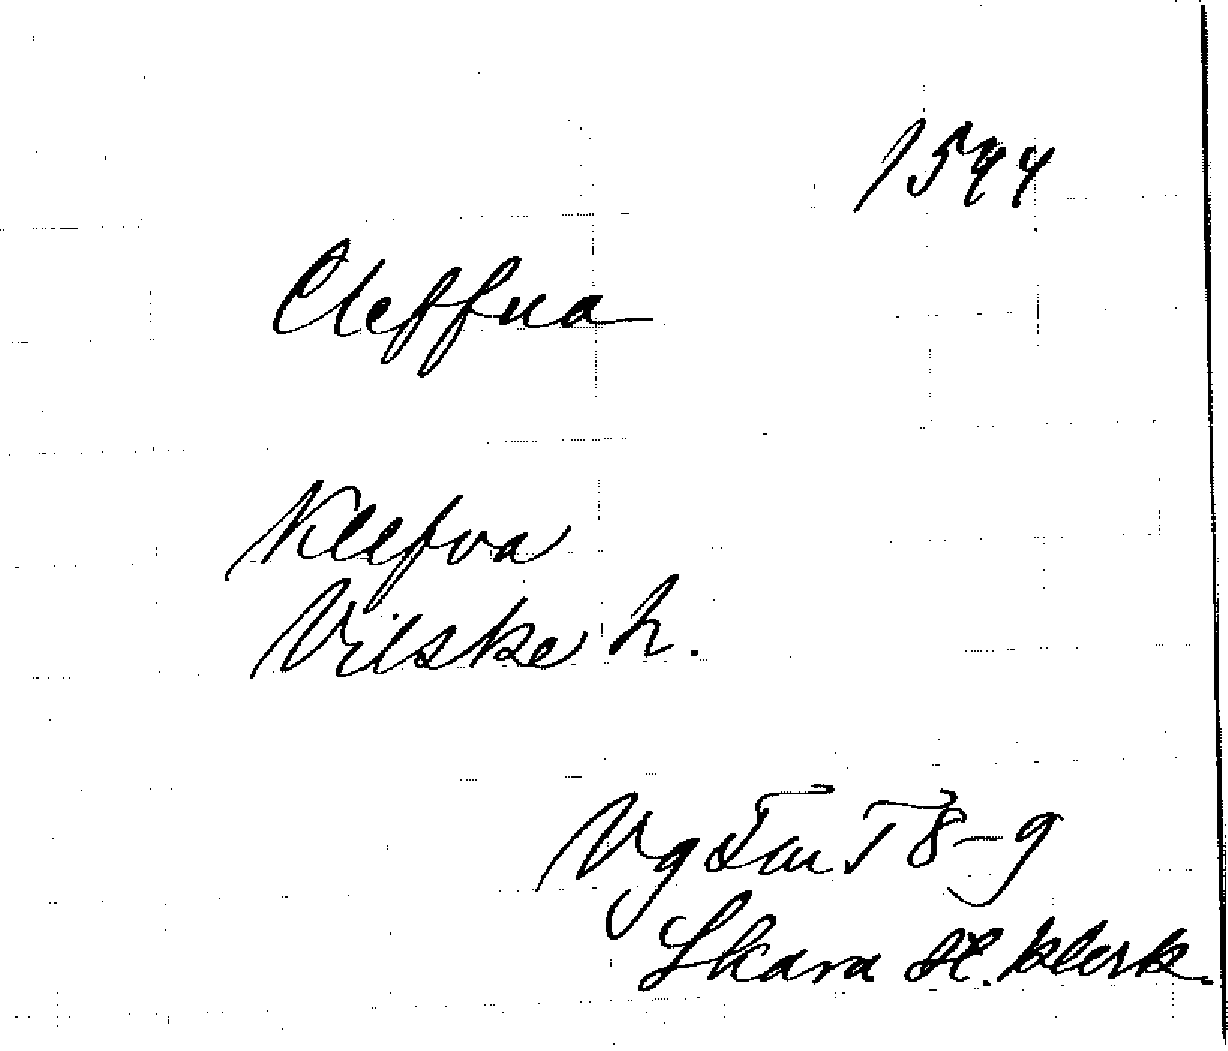 1544
Cleffua
Klefva
Vilske h.
Vg T 8-9
Skara st. klerk.